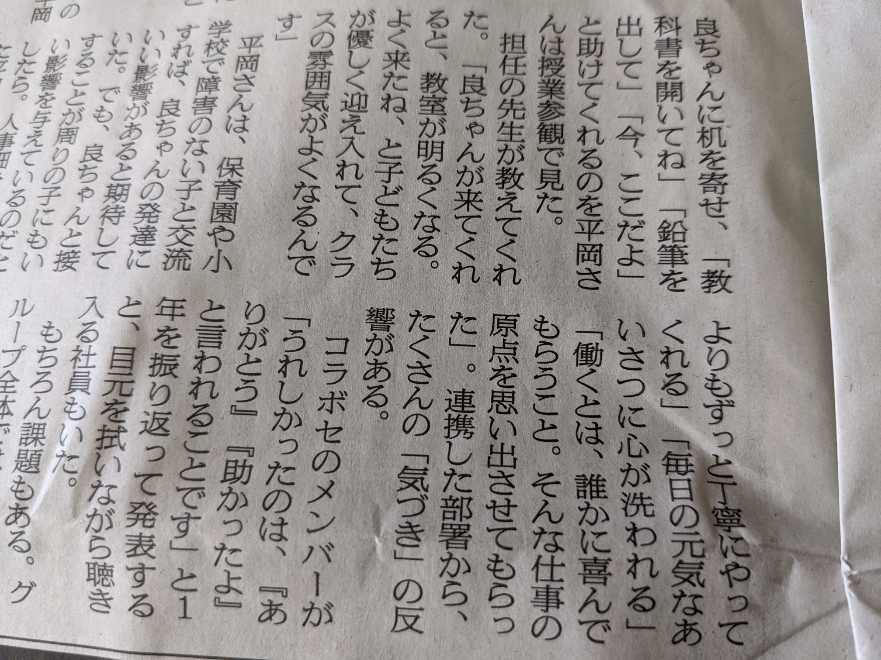 良ちゃんに机を寄せ、「教
科書を開いてね」「鉛筆を
出して」「今、ここだよ」
と助けてくれるのを平岡さ
んは授業参観で見た。
担任の先生が教えてくれ
た。「良ちゃんが来てくれ
ると、教室が明るくなる。
よく来たね、と子どもたち
が優しく迎え入れて、クラ
スの雰囲気がよくなるんで
す」
平岡さんは、保育園や小
学校で障害のない子と交流
すれば、良ちゃんの発達に
いい影響があると期待して
いた。でも、良ちゃんと接
することが周りの子にもい
い影響を与えているのだと
したら。人事
よりもずっと丁寧にやって
くれる」「毎日の元気なあ
いさつに心が洗われる」
「働くとは、誰かに喜んで
もらうこと。そんな仕事の
原点を思い出させてもらっ
た」。連携した部署から、
たくさんの「気づき」の反
響がある。
コラボセのメンバーが
「うれしかったのは、『あ
りがとう』『助かったよ』
と言われることです」と1
年を振り返って発表する
と、目元を拭いながら聴き
入る社員もいた。
もちろん課題もある。グ
ループ全体では